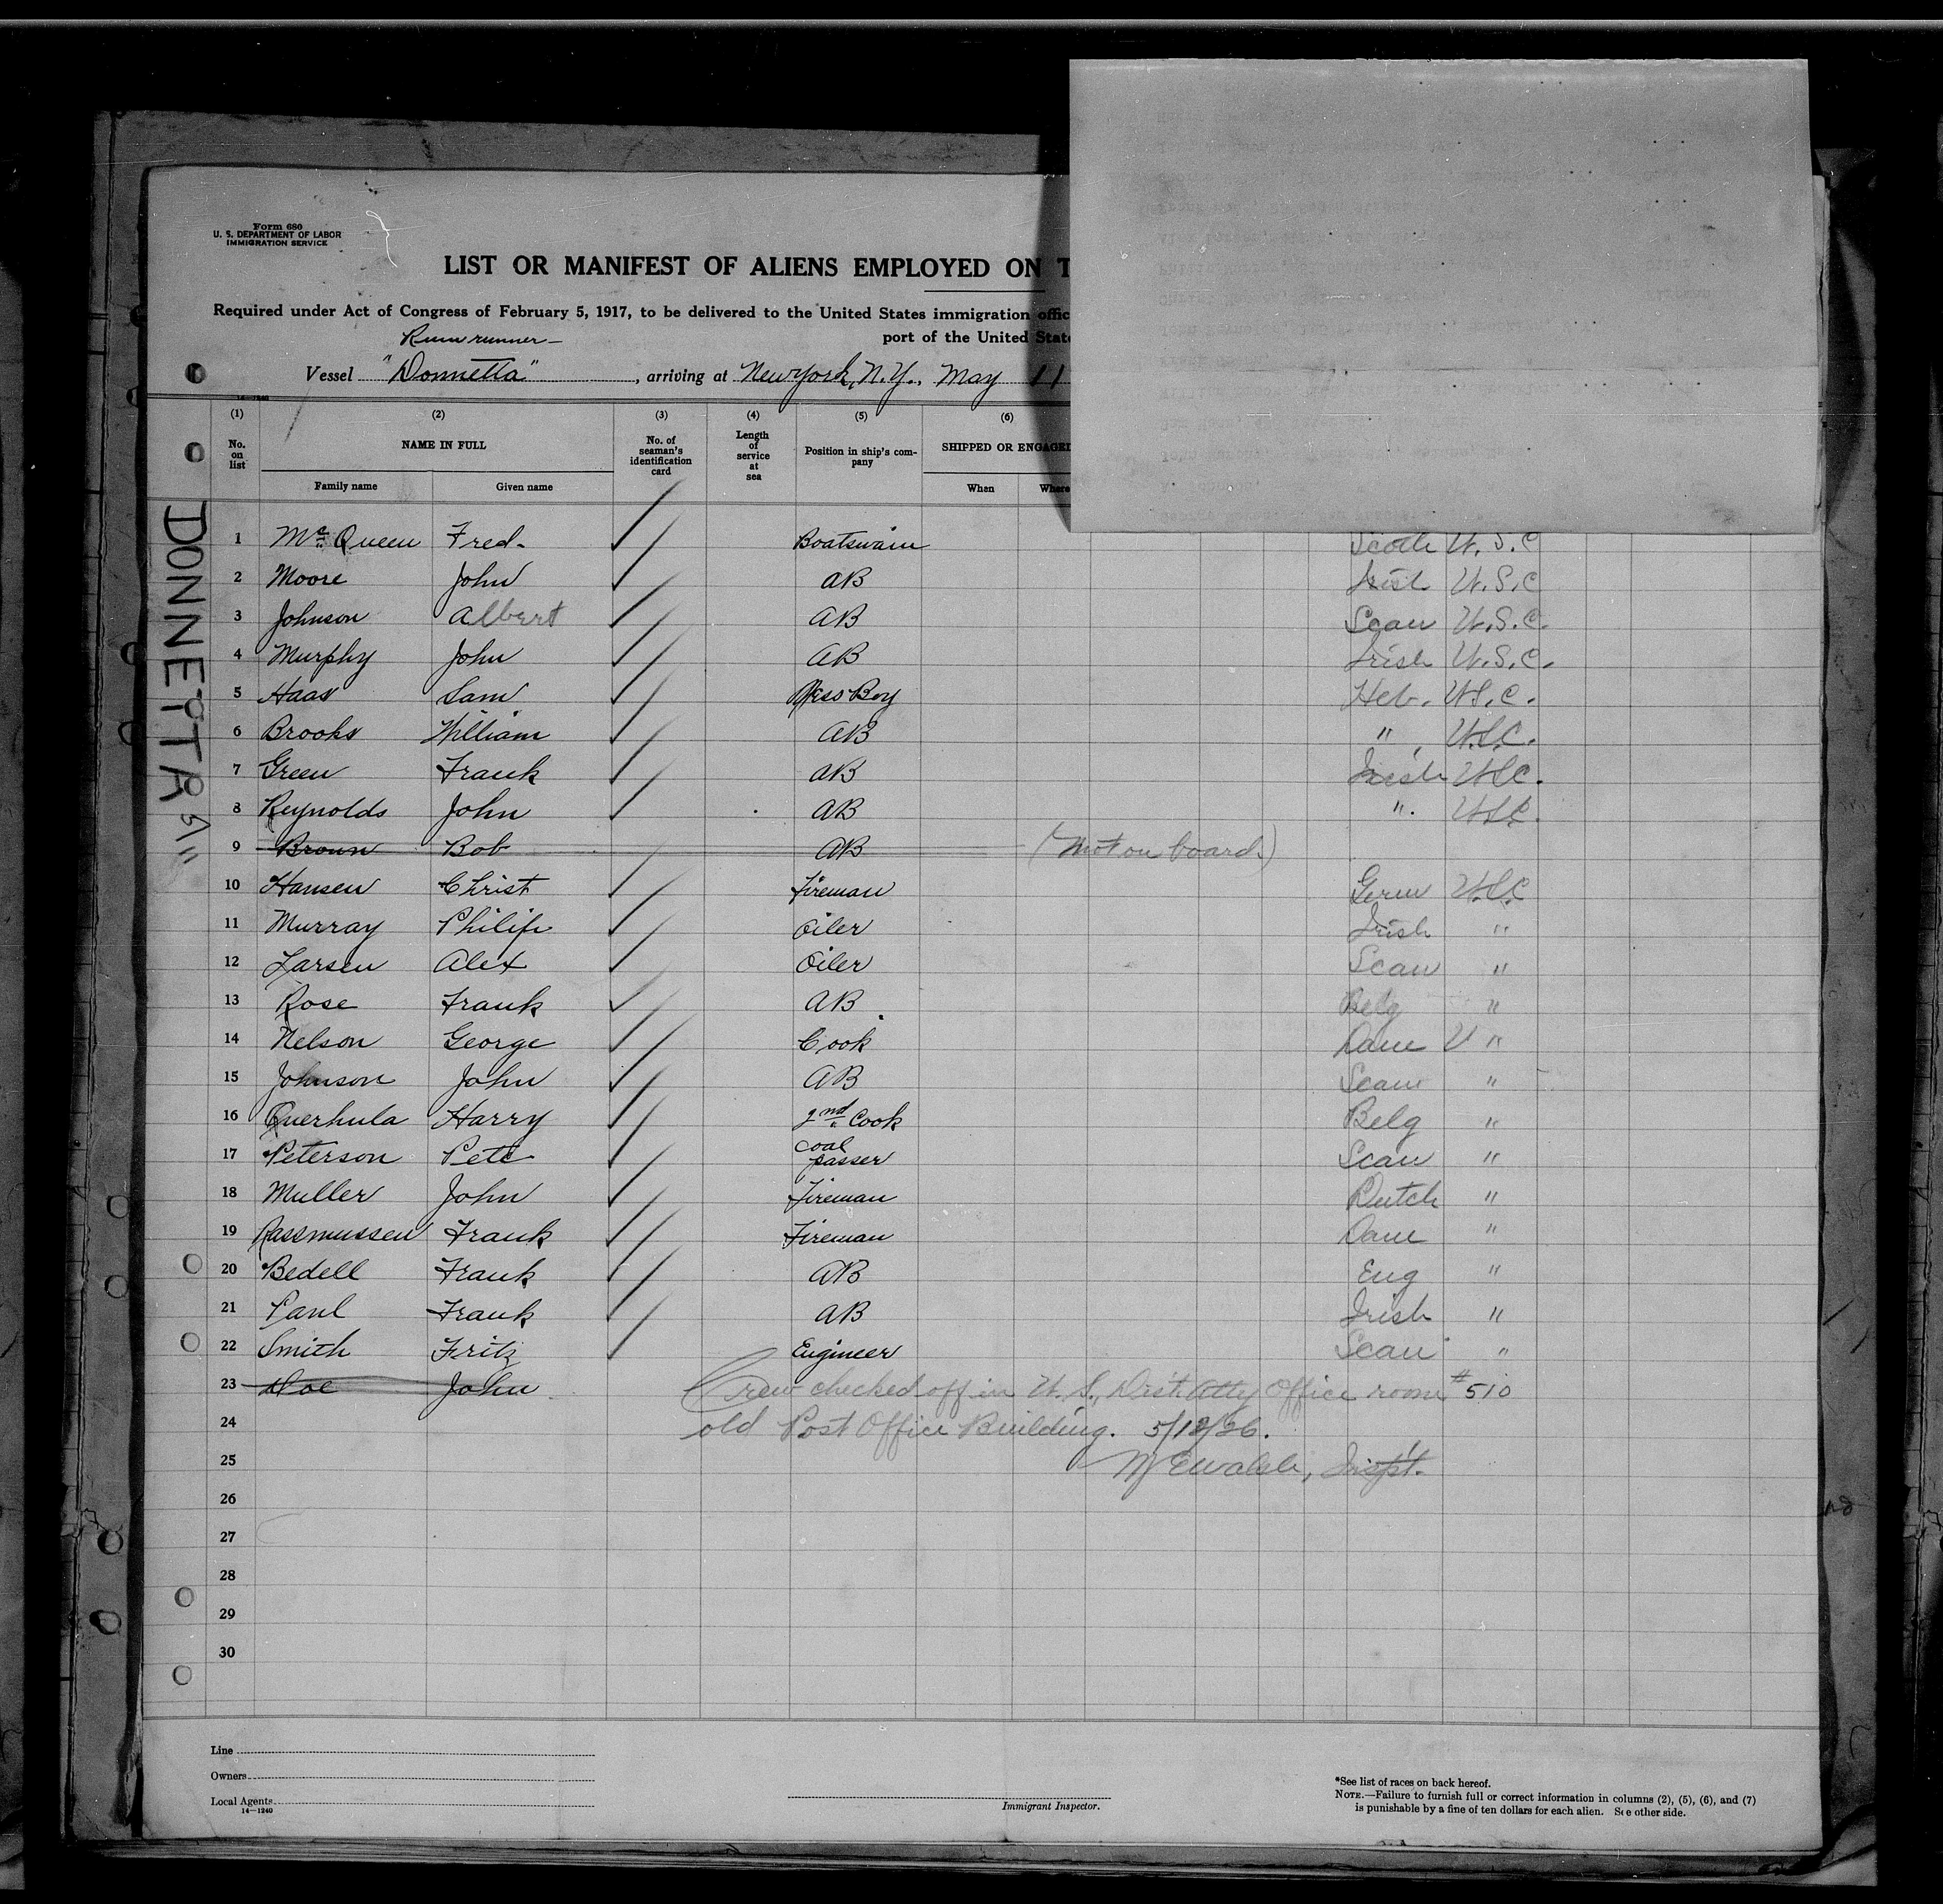 Form 680
U. S. DEPARTMENT OF LABOR
IMMIGRATION SERVICE
LIST OR MANIFEST OF ALIENS EMPLOYED ON T
Required under Act of Congress of February 5, 1917, to be delivered to the United States immigration offic
port of the United State
Rumrunner-
Vessel "Donnetta", arriving at New York, N.Y., May 11
14-1240
(1) (2) (3) (4) (5) (6)
No. on list NAME IN FULL No. of seaman's identification card Length of service at sea Position in ship's company SHIPPED OR ENGAGED
Family name Given name When Where
DONNETTA
1 McQueen Fred- Boatswain Scotch U.S.C
2 Moore John AB Irish U.S.C
3 Johnson Albert AB Scan U.S.C.
4 Murphy John AB Irish U.S.C.
5 Haas Sam Mess Boy Heb. U.S.C.
6 Brooks William AB " U.S.C.
7 Green Frank AB Irish USC.
8 Reynolds John AB ". U.S.C.
9 Brown Bob AB (Not on board)
10 Hansen Christ Fireman Germ U.S.C
11 Murray Philip Oiler Irish "
12 Larsen Alex Oiler Scan "
13 Rose Frank AB Belg "
14 Nelson George Cook Dane U "
15 Johnson John AB Scan "
16 Querhula Harry 2nd Cook Belg "
17 Peterson Pete Coal passer Scan "
18 Muller John Fireman Dutch "
19 Rassmussen Frank Fireman Dane "
20 Bedell Frank AB Eng "
21 Paul Frank AB Irish "
22 Smith Fritz Engineer Scan "
23 Doe John Crew checked off in U.S. Dist. Atty Office room #510
24 old Post Office Building. 5/12/26.
25 M E Walsh, Inspt.
26
27
28
29
30
Line
Owners
Local Agents
14-1240
Immigrant Inspector.
*See list of races on back hereof.
NOTE.—Failure to furnish full or correct information in columns (2), (5), (6), and (7)
is punishable by a fine of ten dollars for each alien. See other side.